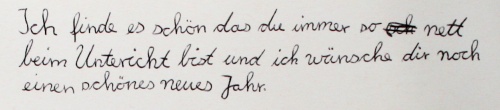 Ich finde es schön das du immer so nett
beim Untericht bist und ich wünsche dir noch
einen schönes neues Jahr.